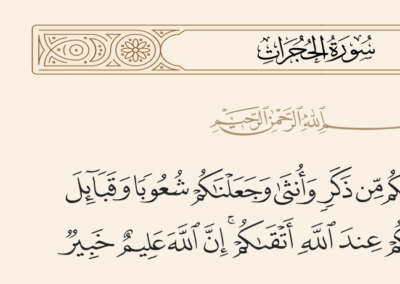 سُورَةُ الحُجُرَاتِ
ٱللَّهِ ٱلرَّحْمَٰنِ ٱلرَّحِيمِ
مِّن ذَكَرٍ وَأُنثَىٰ وَجَعَلْنَاكُمْ شُعُوبًا وَقَبَائِلَ
عِندَ ٱللَّهِ أَتْقَاكُمْ ۚ إِنَّ ٱللَّهَ عَلِيمٌ خَبِيرٌ